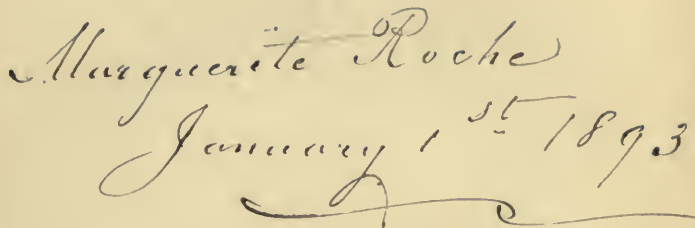 Marguerite Roche
January 1st 1893